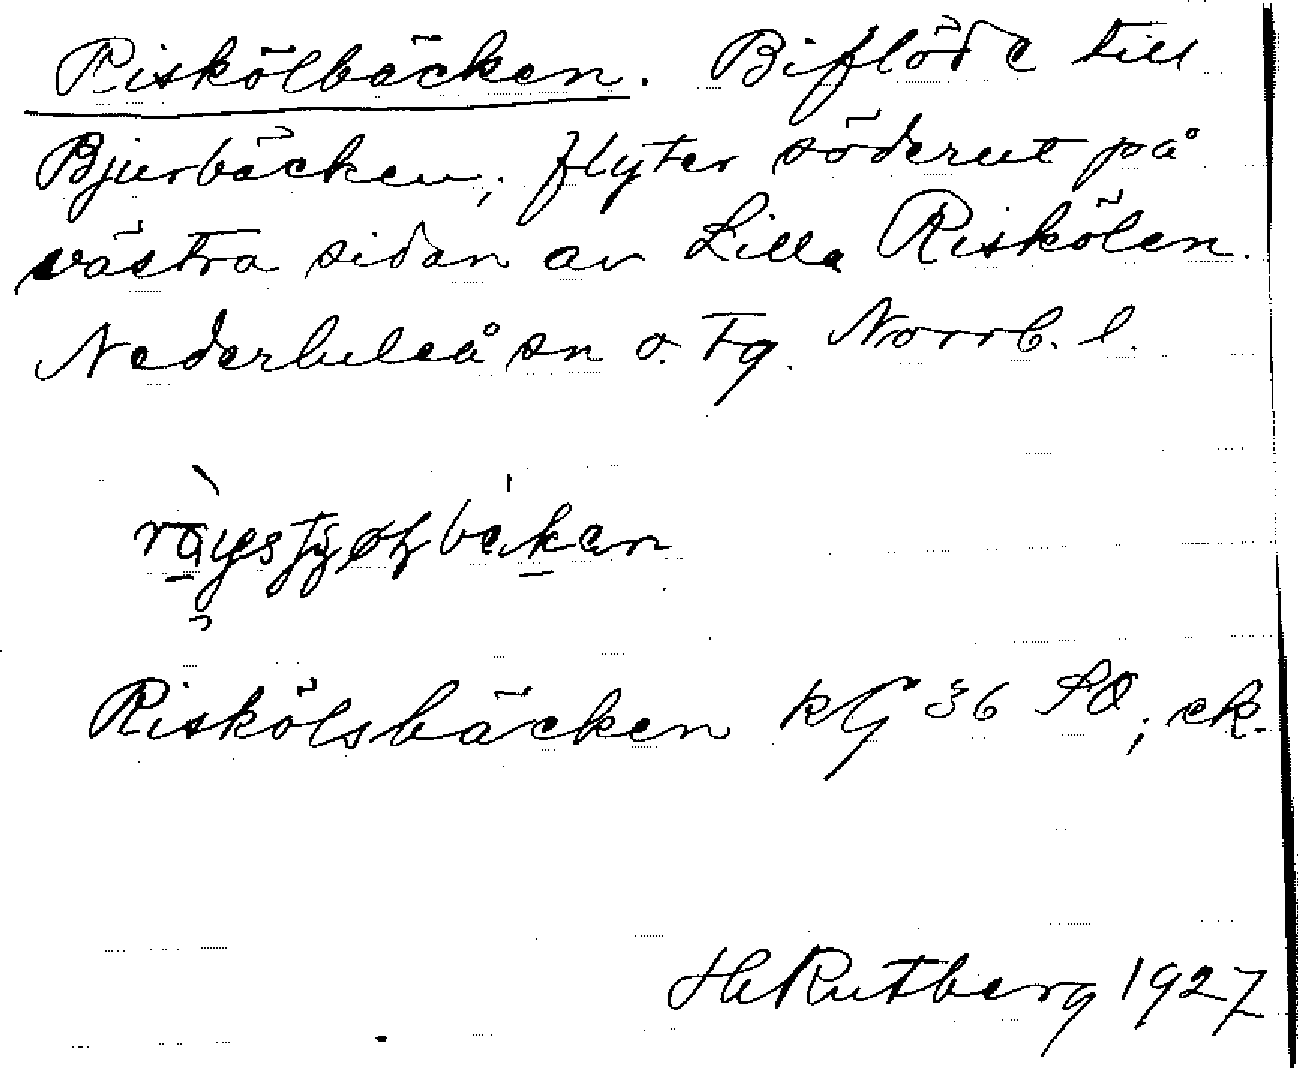 Riskölbäcken. Biflöde till
Bjurbäcken, flyter söderut på
västra sidan av Lilla Riskölen.
Nederluleå sn o. tg. Norrb. l.
Riskölsbäcken kG 36 SO, ek.
H Rutberg 1927